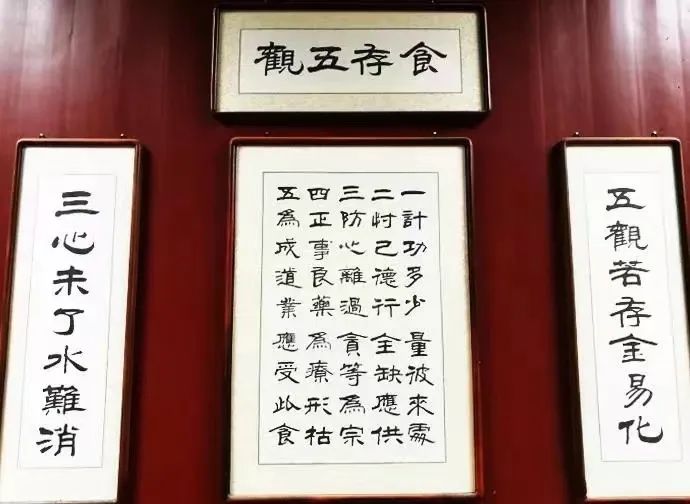 食存五觀
五觀若存金易化
一計功多少 量彼來處
二忖己德行 全缺應供
三防心離過 貪等為宗
四正事良藥 為療形枯
五為成道業 應受此食
三心未了水難消